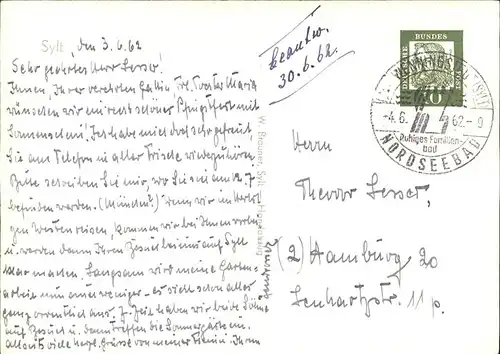 Sylt, den 3.6.62
Sehr geehrter Herr Lesser!
Ihnen, Ihrer verehrten Gattin Frl. Tochter Maria
wünschen wir ein recht schönes Pfingstfest mit
Sonnenschein! Ich habe mich doch sehr gefreut,
Sie am Telefon in alter Frische wiederzuhören.
Bitte schreiben Sie mir, wo Sie sich am 12.7
befinden werden. (München?) Wenn wir im Herbst
gen Westen reisen, kommen wir bei Ihnen vorbei
u. werden dann Ihren Besuch bei uns auf Sylt
klar machen. Langsam wird meine Garten-
arbeit nun etwas weniger - es sieht schon alles
ganz ordentlich aus. Z. Zeit haben wir beide Söhne
auf Besuch u. dann treffen die Sommergäste ein.
Alles Gute viele herzl. Grüsse von meiner Frau u. Ihrem
beantw.
30.6.62.
W. Bremer, Sylt
DEUTSCHE BUNDESPOST
10
-4.6.62.-9
Ruhiges Familien-
bad
NORDSEEBAD
Herrn
Theodor Lesser,
(2) Hamburg 20
Lenhartzstr. 11 p.